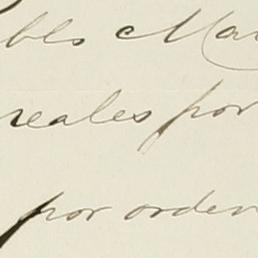 bls c Mar
reales por
por orden